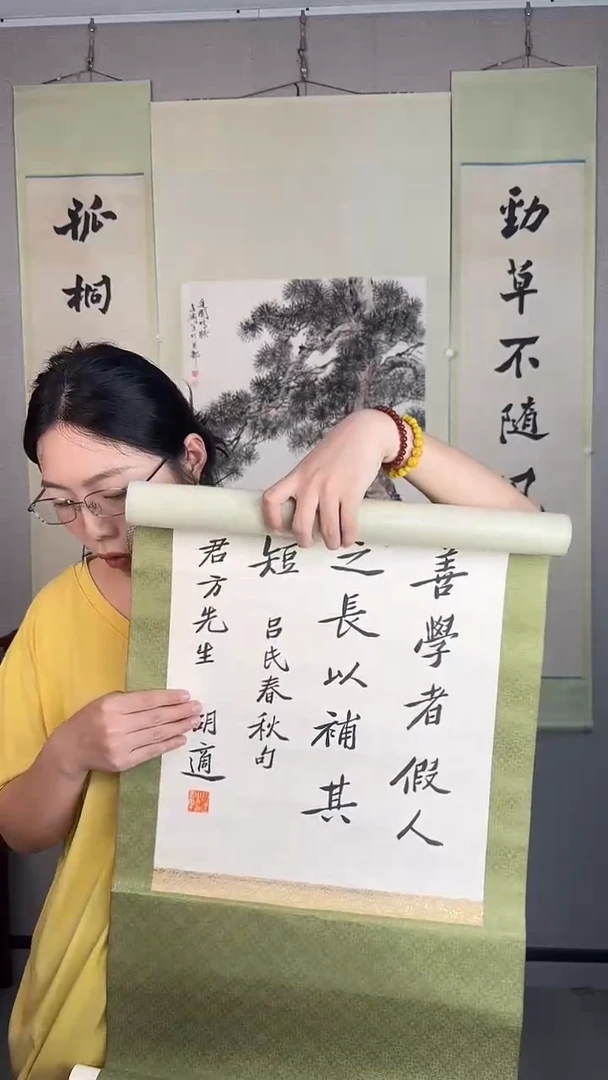 善學者假人
之長以補其
短
呂氏春秋句
君方先生
胡適
勁草不隨
孤桐